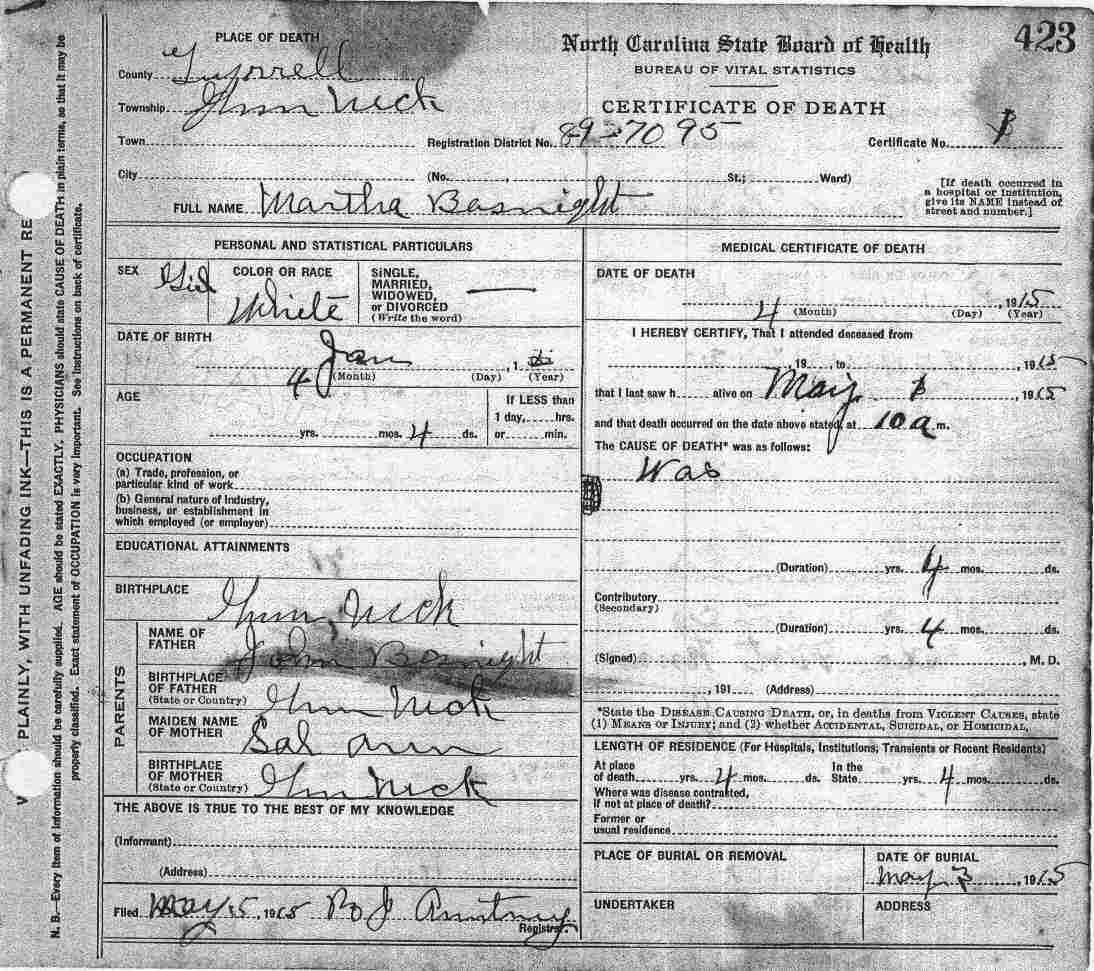 423
North Carolina State Board of Health
BUREAU OF VITAL STATISTICS
CERTIFICATE OF DEATH
PLACE OF DEATH
County Tyrrell
Township Gum Neck
Town Registration District No. 8927095 Certificate No. 1
City (No. , St.; Ward)
[If death occurred in a hospital or institution, give its NAME instead of street and number.]
FULL NAME Martha Basnight
PERSONAL AND STATISTICAL PARTICULARS
SEX Girl
COLOR OR RACE White
SINGLE, MARRIED, WIDOWED, or DIVORCED (Write the word)
DATE OF BIRTH
Jan
4 (Month) (Day) , 1 (Year)
AGE
yrs. mos. 4 ds.
If LESS than
1 day, hrs.
or min.
OCCUPATION
(a) Trade, profession, or
particular kind of work
(b) General nature of Industry,
business, or establishment in
which employed (or employer)
EDUCATIONAL ATTAINMENTS
BIRTHPLACE Gum Neck
PARENTS
NAME OF FATHER John Basnight
BIRTHPLACE OF FATHER (State or Country) Gum Neck
MAIDEN NAME OF MOTHER Sal Ann
BIRTHPLACE OF MOTHER (State or Country) Gum Neck
THE ABOVE IS TRUE TO THE BEST OF MY KNOWLEDGE
(Informant)
(Address)
Filed May 5, 1915 B J
Registrar.
MEDICAL CERTIFICATE OF DEATH
DATE OF DEATH
4 , 1915
(Month) (Day) (Year)
I HEREBY CERTIFY, That I attended deceased from
, 19 , to , 1915
that I last saw h alive on May 1 , 1915
and that death occurred on the date above stated, at 10 a m.
The CAUSE OF DEATH* was as follows:
Was
(Duration) yrs. 4 mos. ds.
Contributory
(Secondary)
(Duration) yrs. 4 mos. ds.
(Signed) , M. D.
, 191 (Address)
*State the DISEASE CAUSING DEATH, or, in deaths from VIOLENT CAUSES, state
(1) MEANS OF INJURY; and (2) whether ACCIDENTAL, SUICIDAL, or HOMICIDAL.
LENGTH OF RESIDENCE (For Hospitals, Institutions, Transients or Recent Residents)
At place In the
of death yrs. 4 mos. ds. State yrs. 4 mos. ds.
Where was disease contracted,
if not at place of death?
Former or
usual residence
PLACE OF BURIAL OR REMOVAL
DATE OF BURIAL
May 3 , 1915
UNDERTAKER
ADDRESS
PLAINLY, WITH UNFADING INK—THIS IS A PERMANENT RE
N. B.—Every item of information should be carefully supplied. AGE should be stated EXACTLY. PHYSICIANS should state CAUSE OF DEATH in plain terms, so that it may be
properly classified. Exact statement of OCCUPATION is very important. See instructions on back of certificate.